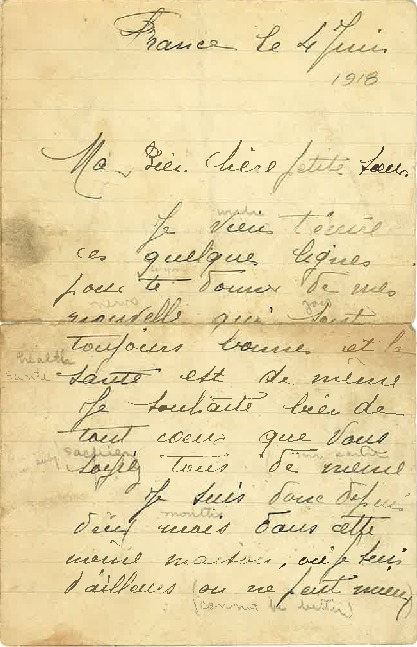 France le 4 Juin
1918
Ma Bien chère petite Soeur
Je vien t'ecrire
ces quelque lignes
pour te donner de mes
news
nouvelle qui sont
toujours bonnes et la
health
santé
santé est de même
Je souhaite bien de
tout coeur que vous
soyez tous de même
Je suis donc depuis
months
deux mois dans cette
même maison, où je suis
d'ailleurs (on ne peut mieux)
(cannot be better)